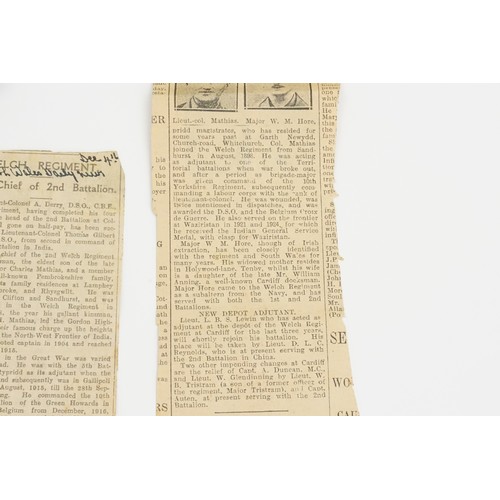 Dec 4th
WELCH REGIMENT
Chief of 2nd Battalion.
nt-Colonel A. Derry, D.S.O., C.B.E.,
iment, having completed his tour
n head of the 2nd Battalion at Col-
d gone on half-pay, has been suc-
Lieutenant-Colonel Thomas Gilbert
D.S.O., from second in command of
attalion in India.
chief of the 2nd Welch Regiment
don, the eldest son of the late
or Charles Mathias, and a member
ll-known Pembrokeshire family,
s family residences at Lamphey
broke, and Rhysgwilt. He was
Clifton and Sandhurst, and was
in the Welch Regiment in
the year his gallant kinsman,
Mathias, led the Gordon High-
eir famous charge up the heights
the North-West Frontier of India.
moted captain in 1904 and reached
1916.
in the Great War was varied
ed. He was with the 3th Bat-
rydd as adjutant when the
and subsequently was in Gallipoli
August, 1915, till the 28th Sep-
ng. He commanded the 10th
alion of the Green Howards in
Belgium from December, 1916,
Lieut.-col. Mathias. Major W. M. Hore.
eridd magistrates, who has resided for
some years past at Garth Newydd,
Church-road, Whitchurch, Col. Mathias
joined the Welch Regiment from Sand-
hurst in August, 1898. He was acting
as adjutant to one of the Terri-
torial battalions when war broke out,
and after a period as brigade-major
was given command of the 10th
Yorkshire Regiment, subsequently com-
manding a labour corps with the rank of
lieutenant-colonel. He was wounded, was
twice mentioned in dispatches, and was
awarded the D.S.O. and the Belgium Croix
de Guerre. He also served on the frontier
at Waziristan in 1921 and 1924, for which
he received the Indian General Service
Medal, with clasp for Waziristan.
Major W. M. Hore, though of Irish
extraction, has been closely identified
with the regiment and South Wales for
many years. His widowed mother resides
in Holywood-lane, Tenby, whilst his wife
is a daughter of the late Mr. William
Anning, a well-known Cardiff docksman.
Major Hore came to the Welch Regiment
as a subaltern from the Navy, and has
served with both the 1st and 2nd
Battalions.
NEW DEPOT ADJUTANT.
Lieut. L. B. S. Lewin who has acted as
adjutant at the depot of the Welch Regi-
ment at Cardiff for the last three years,
will shortly rejoin his battalion. His
place will be taken by Lieut. D. L. C.
Reynolds, who is at present serving with
the 2nd Battalion in China.
Two other impending changes at Cardiff
are the relief of Cant. A. Duncan, M.C.,
and Lieut. W. Glendinning by Lieut. W.
B. Tristram (a son of a former officer of
the regiment, Major Tristram), and Cant.
Auten, at present serving with the 2nd
Battalion.